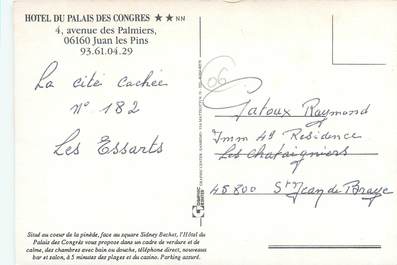 HOTEL DU PALAIS DES CONGRES ★★NN
4, avenue des Palmiers,
06160 Juan les Pins
93.61.04.29
La cité cachée
N° 182
Les Essarts
06
Gatoux Raymond
Imm 49 Residence
Les Chataigniers
45800 St Jean de Braye
Situé au coeur de la pinède, face au square Sidney Bechet, l'Hôtel du
Palais des Congrès vous propose dans un cadre de verdure et de
calme, des chambres avec bain ou douche, téléphone direct, nouveaux
bar et salon, à 5 minutes des plages et du casino. Parking assuré.